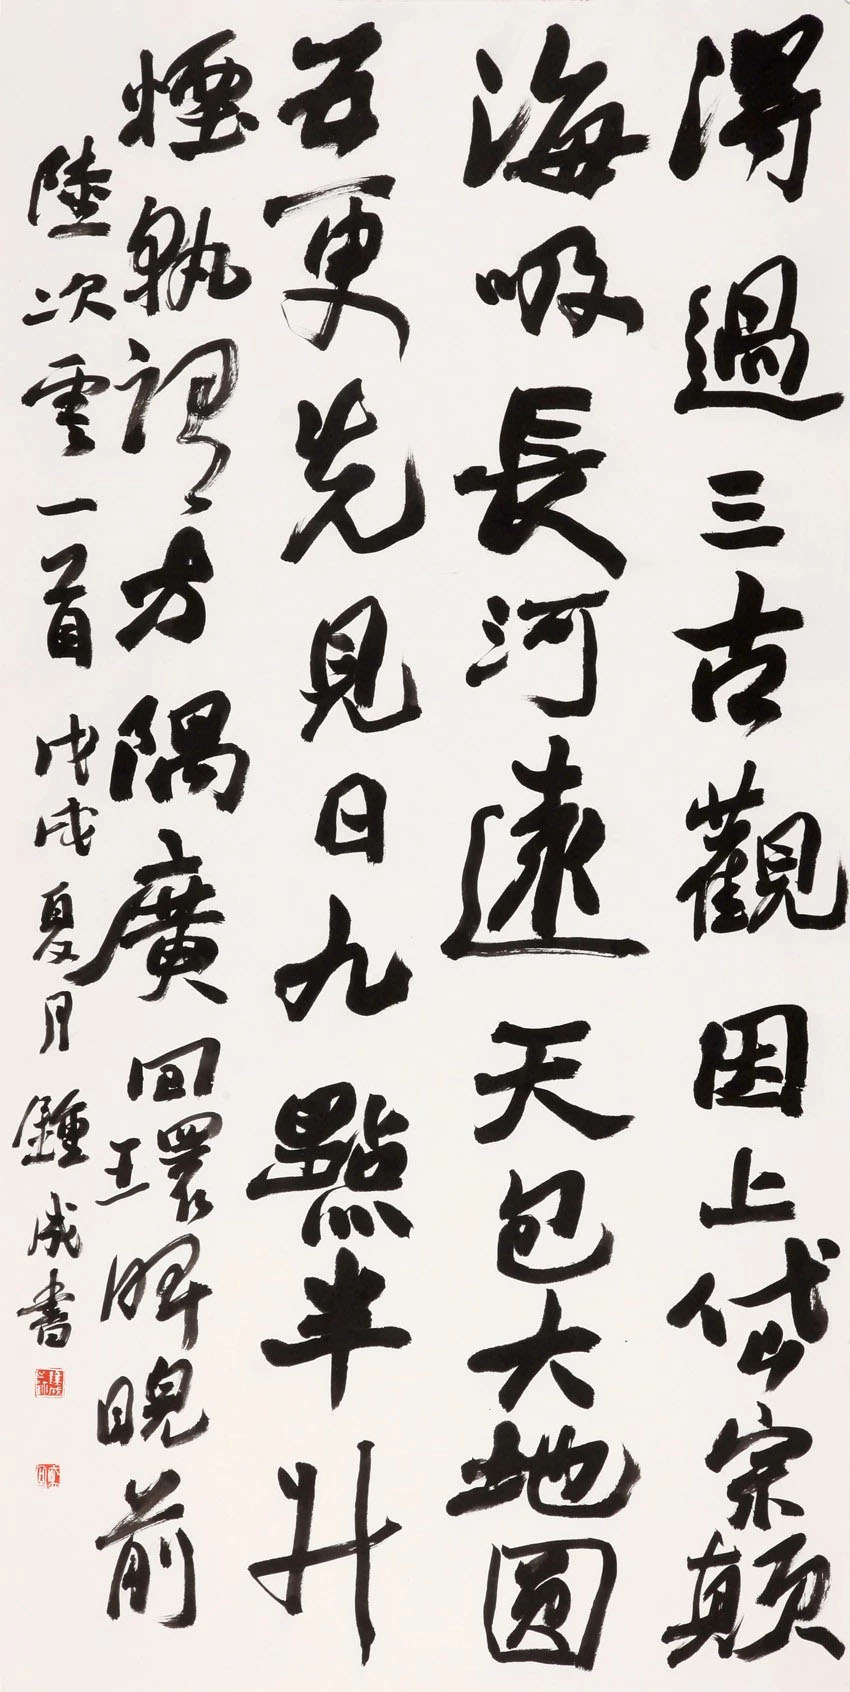 得過三古觀因上岱宗顛
海吸長河遠天包大地圓
五更先見日九點半升
煙孰謂方隅廣回環睥睨前
陸次雲一首戊戌夏月鍾成書